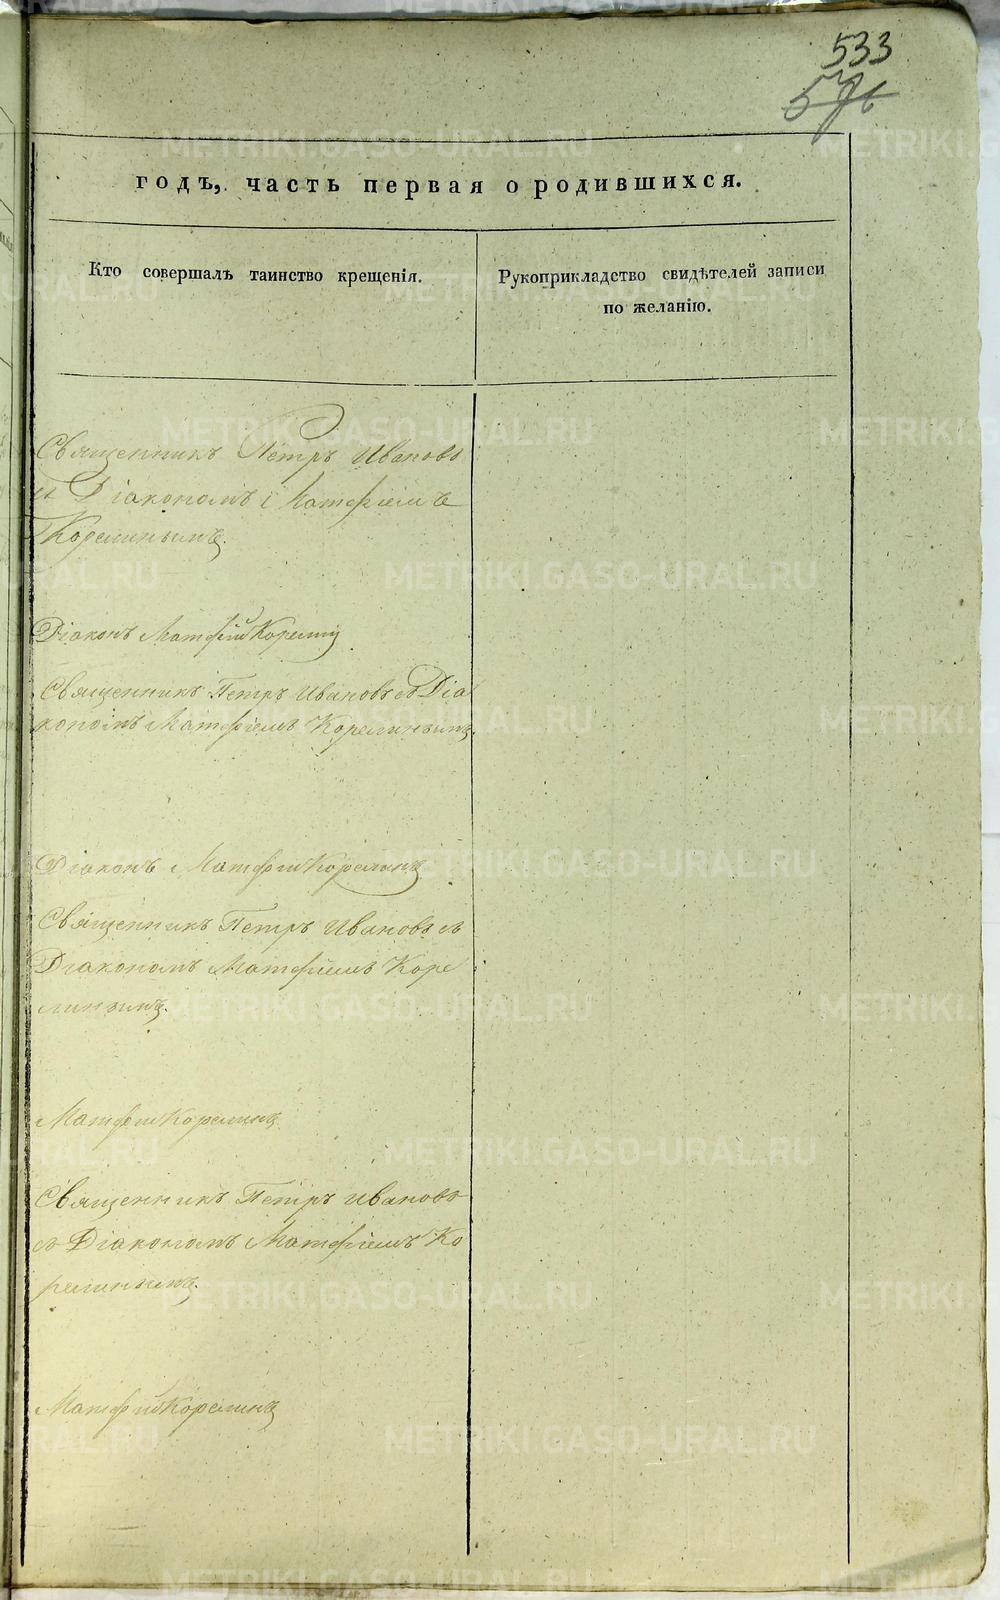 533
576
годъ, часть первая о родившихся.
Кто совершалъ таинство крещенія.
Рукоприкладство свидѣтелей записи
по желанію.
Священникъ Петръ Ивановъ
съ Діакономъ Матфіемъ
Корелинымъ.
Діаконъ Матфій Корелинъ
Священникъ Петръ Ивановъ съ Діа
кономъ Матфіемъ Корелинымъ.
Діаконъ Матфій Корелинъ
Священникъ Петръ Ивановъ съ
Діакономъ Матфіемъ Коре
линымъ.
Матфій Корелинъ
Священникъ Петръ Ивановъ
съ Діакономъ Матфіемъ Ко
релинымъ.
Матфій Корелинъ
METRIKI.GASO-URAL.RU